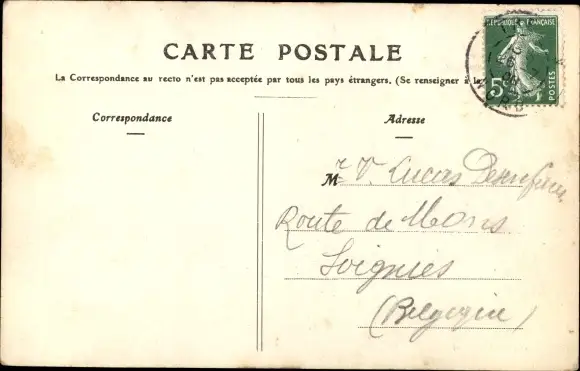 CARTE POSTALE
La Correspondance au recto n'est pas acceptée par tous les pays étrangers. (Se renseigner à la
REPUBLIQUE FRANÇAISE
5c
POSTES
Correspondance
Adresse
Mr V. Lucas
Route de Mons
Soignies
(Belgique)